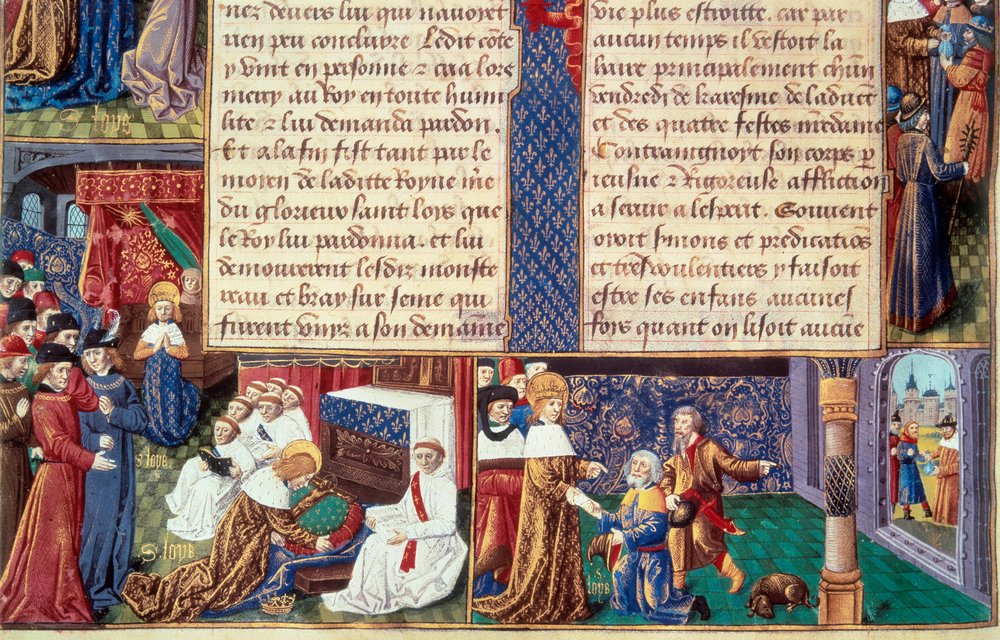 nez devers lui qui navoiet
rien peu conclure Ledit cōte
y vint en personne &
mercy au Roy en toute humi
lite & lui demanda pardon.
Et a la fin fist tant par le
moyen de laditte Royne me
du glorieux saint loys que
le Roy lui pardonna. et lui
demourerent lesdiz monste
reau et bray sur seine qui
furent vniz a son demaine
vie plus estroitte, car par
aucun temps il vestoit la
haire principalement chūn
vendredi de karesme de laduēt
et des quatre festes
son corps p
ieusne & Rigoreuse affliction
a seruir a lesperit. Souuent
ooioit smons et predicatiōs
et tres voulentiers y faisoit
estre ses enfans aucunes
fois quant on lisoit aucune
S. loys
s loys
S. loys
s loys